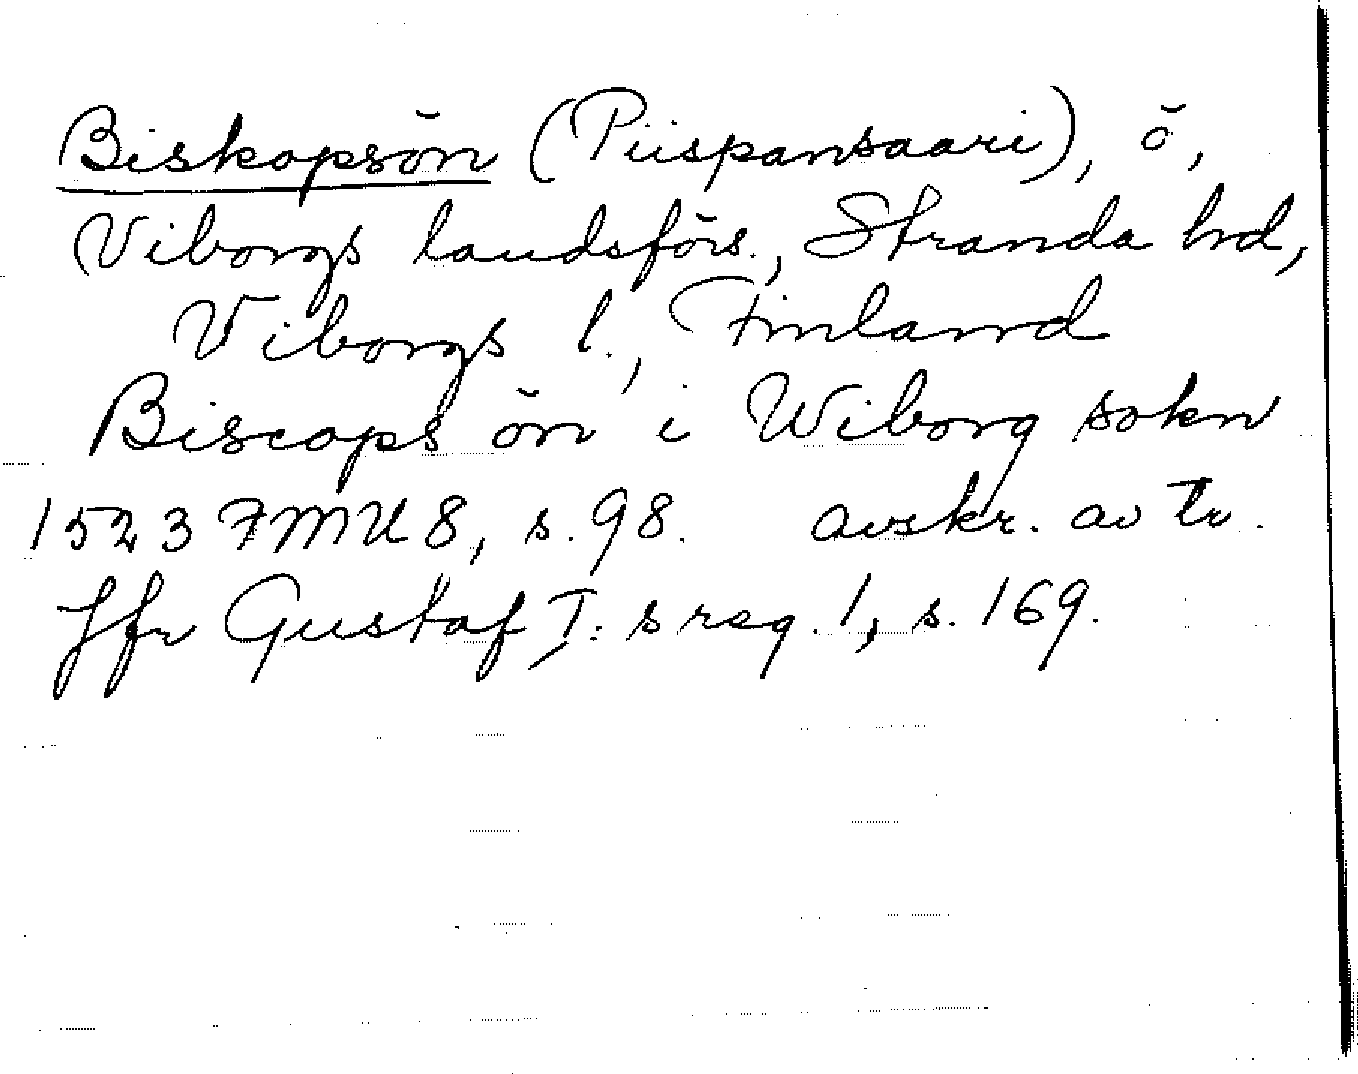 Biskopsön (Piispansaari), ö,
Viborgs landsförs., Stranda hrd,
Viborgs l., Finland
Biscops ön i Wiborg sokn
1523 FMU 8, s. 98. avskr. av tr.
Jfr Gustaf I:s reg. 1, s. 169.